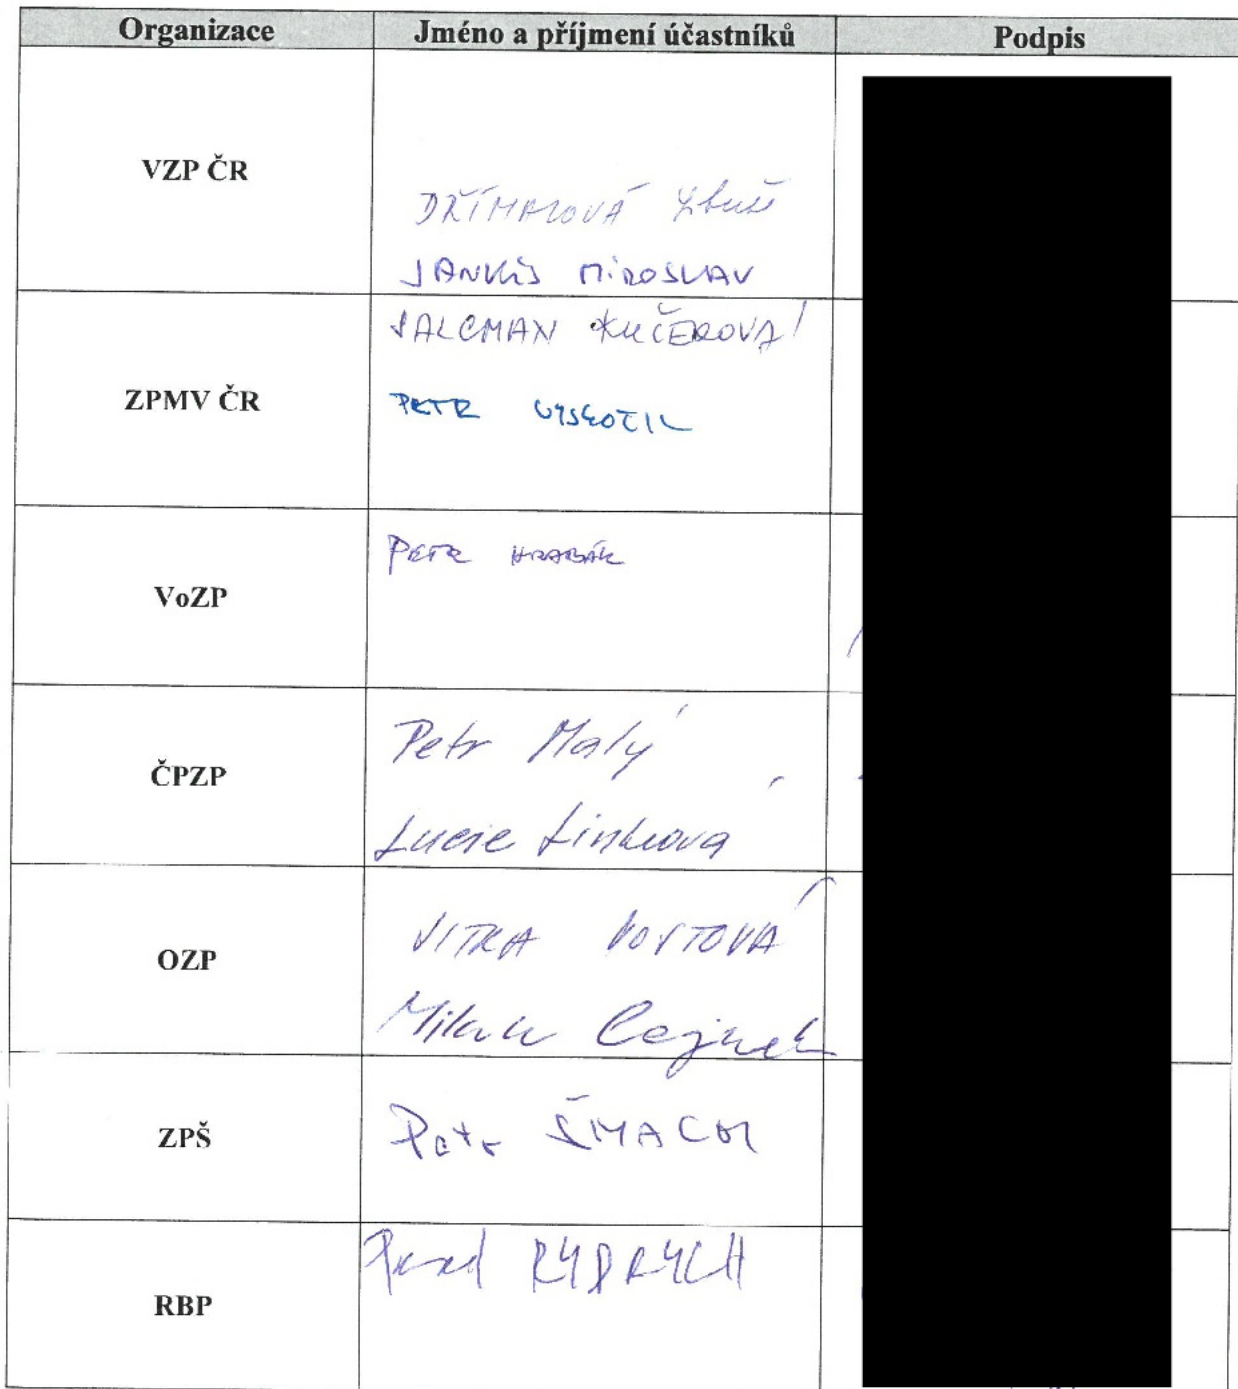 Organizace Jméno a příjmení účastníků Podpis
VZP ČR
DŘÍMALOVÁ
JANKŮJ MIROSLAV
ZPMV ČR
SALCMAN KUČEROVÁ
PETR VYSKOČIL
VoZP
PETR HRABÁK
ČPZP
Petr Malý
Lucie Linkeová
OZP
JITKA VOJTOVÁ
Milan Cajnek
ZPŠ
Petr ŠMACH
RBP
RYDRYCH